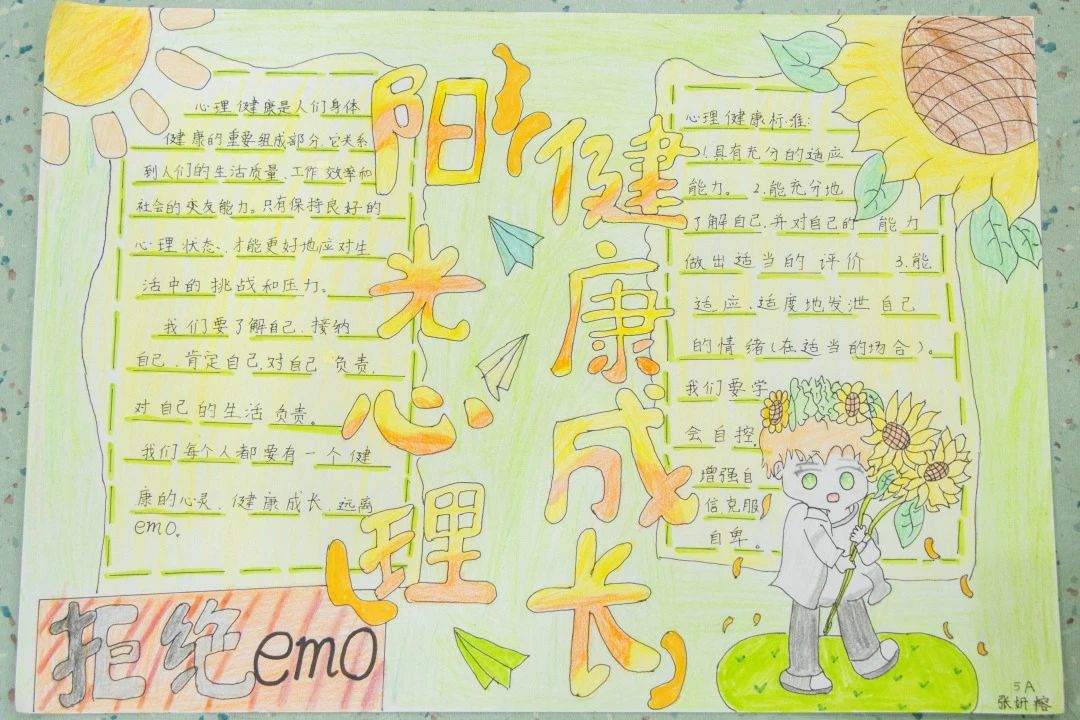 阳光心理
健康成长
心理健康是人们身体
健康的重要组成部分,它关系
到人们的生活质量、工作效率和
社会的交友能力。只有保持良好的
心理状态、才能更好地应对生
活中的挑战和压力。
我们要了解自己、接纳
自己、肯定自己,对自己负责,
对自己的生活负责。
我们每个人都要有一个健
康的心灵、健康成长、远离
emo。
拒绝emo
心理健康标准:
1.具有充分的适应
能力。2.能充分地
了解自己,并对自己的能力
做出适当的评价 3.能
适应、适度地发泄自己
的情绪(在适当的场合)。
我们要学
会自控,
增强自
信克服
自卑。
5A
张妍榕